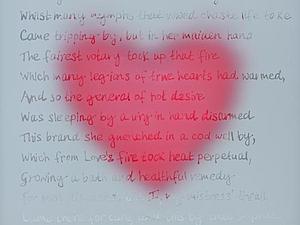 Whilst many nymphs that vowed chaste life to keep
Came tripping by, but in her maiden hand
The fairest votary took up that fire
Which many legions of true hearts had warmed,
And so the general of hot desire
Was sleeping by a virgin hand disarmed
This brand she quenched in a cool well by,
Which from Love's fire took heat perpetual,
Growing a bath and healthful remedy
For men diseased; but I, my mistress' thrall
Came there for cure and this by that I prove